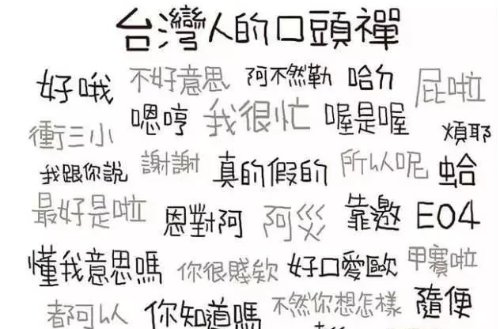 台灣人的口頭禪
好哦 不好意思 阿不然勒 哈勿 屁啦
衝三小 嗯哼 我很忙 喔是喔 煩耶
我跟你說 謝謝 真的假的 所以呢 蛤
最好是啦 恩對阿 阿災 靠邀 E04
懂我意思嗎 你很賤欸 好口愛歐 甲賽啦
都可以 你知道嗎 不然你想怎樣 隨便